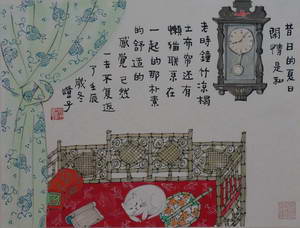 昔日的夏日
閑情是和
老時鐘竹涼榻
土布帘还有
懒猫联系在
一起的那朴素
的舒适的
感覺已然
一去不复返
了壬辰
歲冬